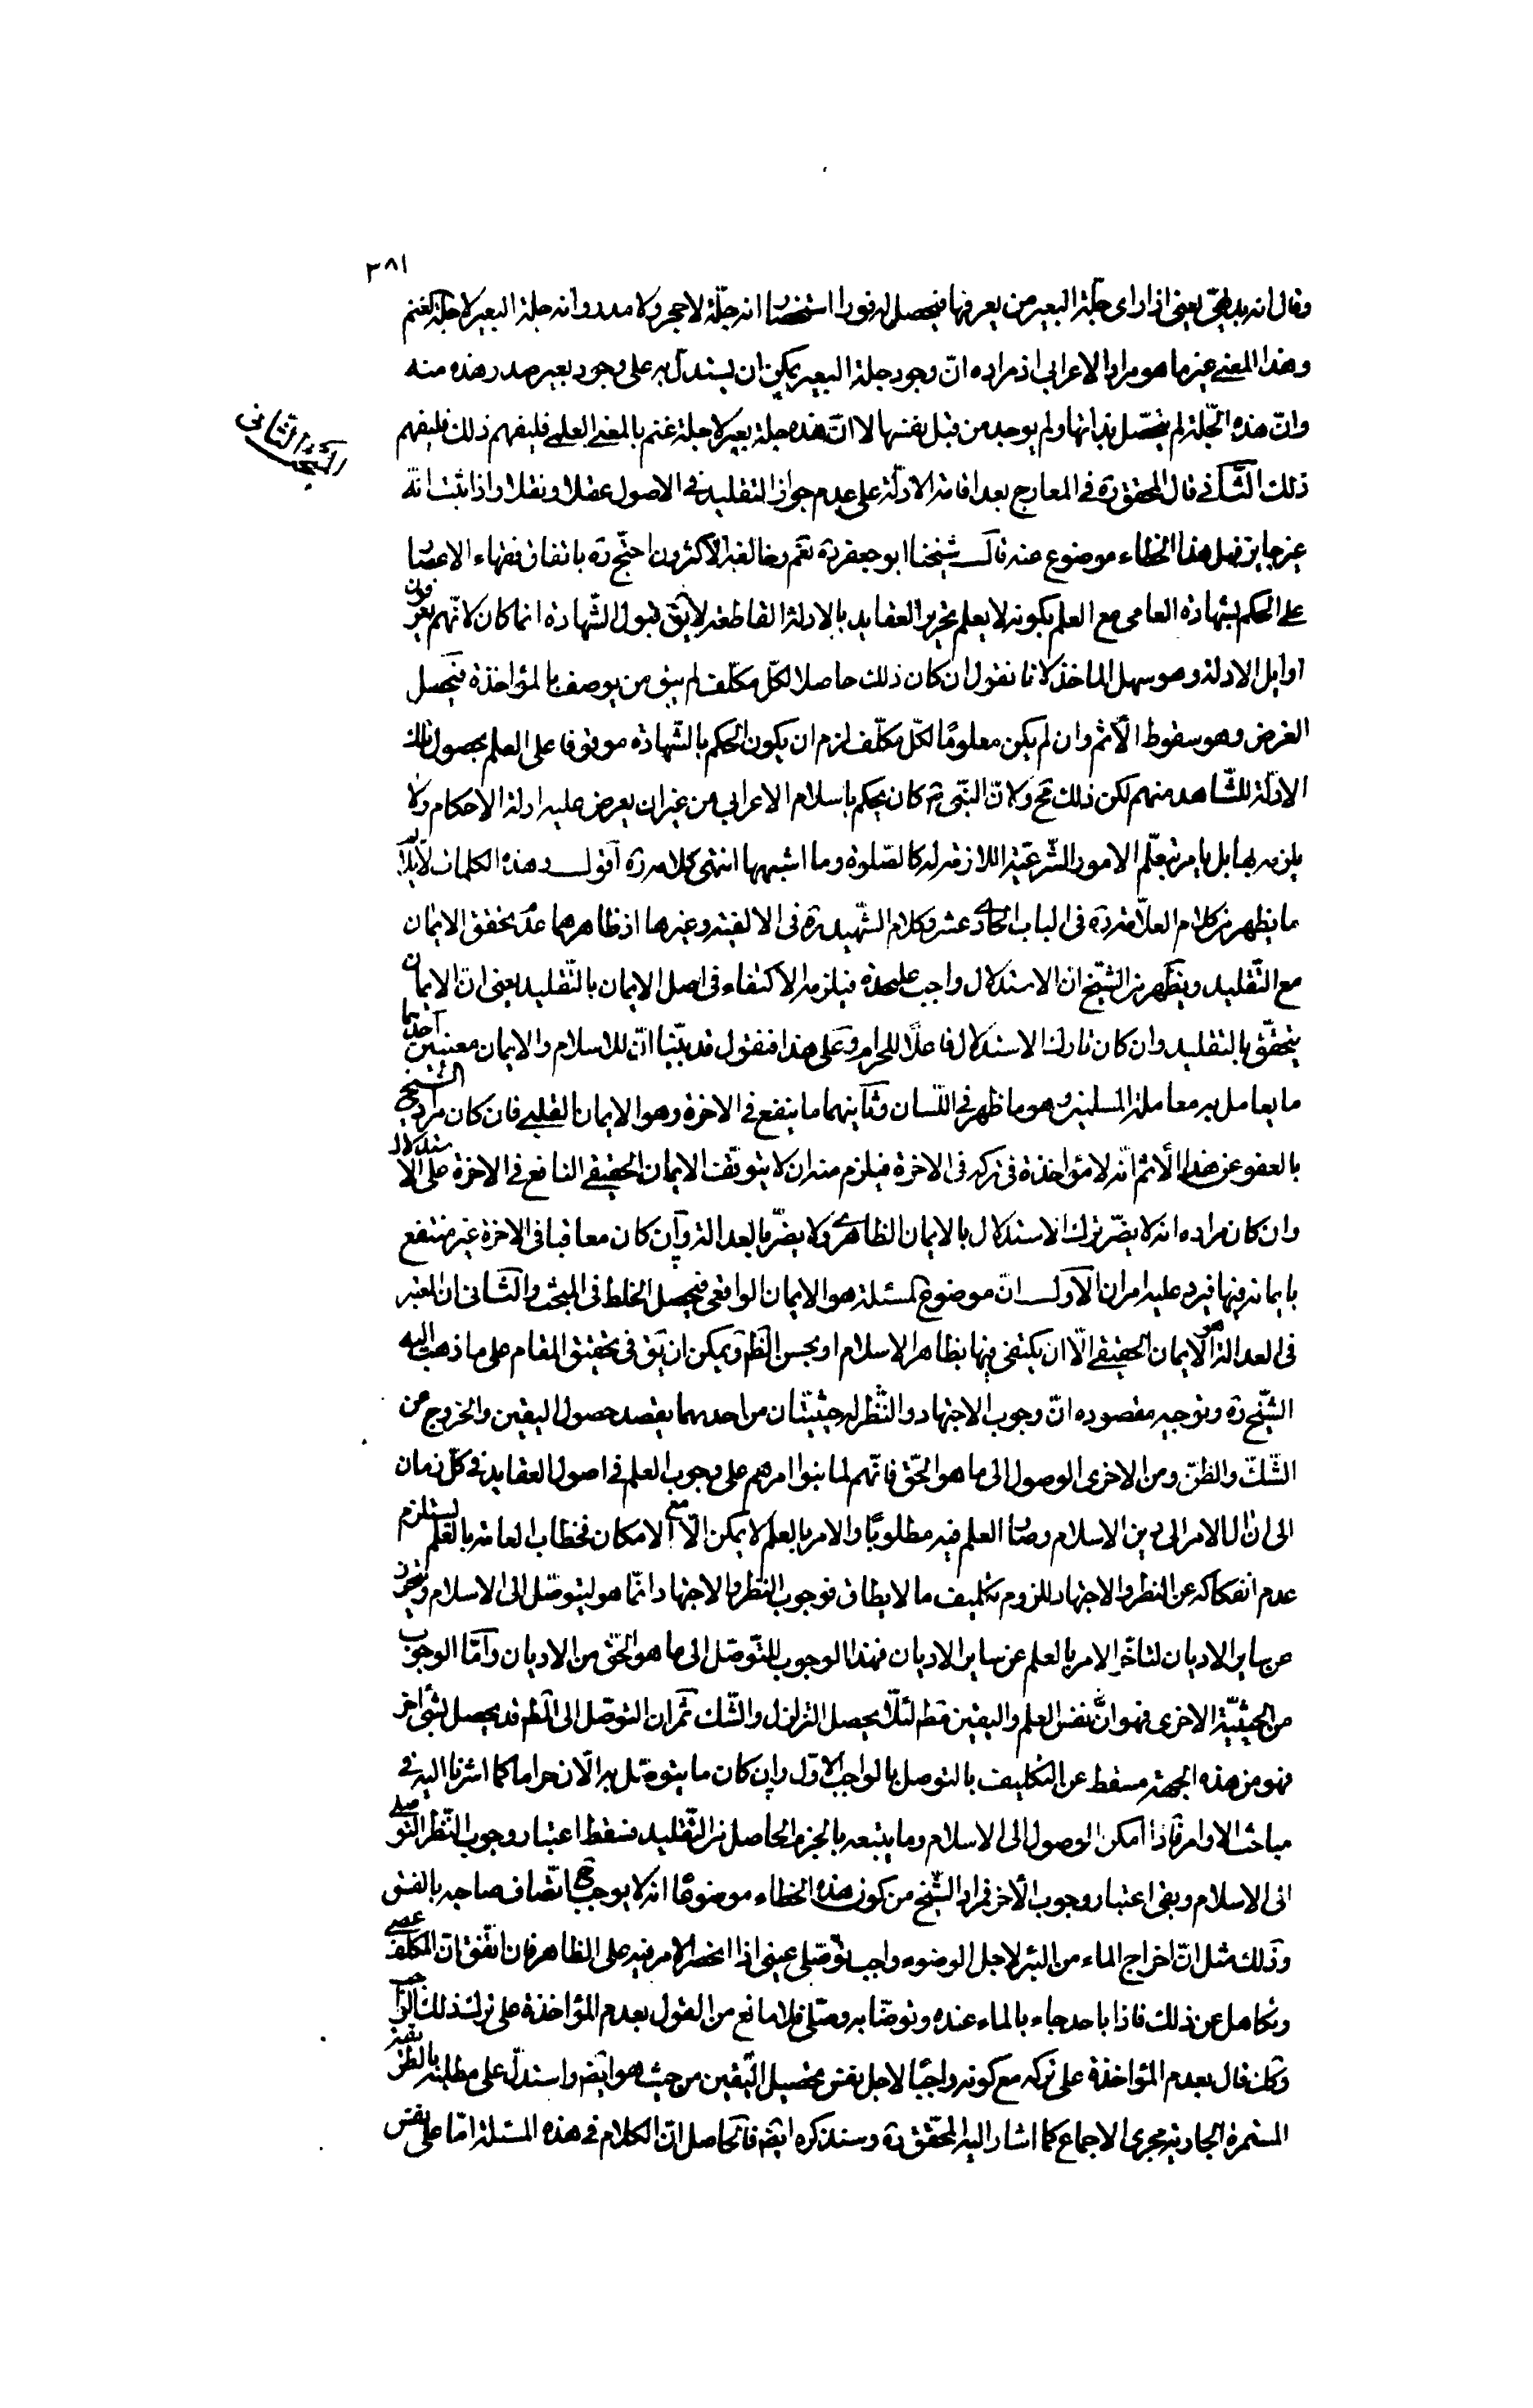 ٣٨١
وقال انه بديهي يعني اذا راى جلّة البعير من يعرفها فيحصل له فورا استحضار انه جلّة لا حجر ولا مدر وانه جلة البعير لا جلة الغنم
وهذا المعنى غير ما هو مراد الاعرابى اذ مراده انّ وجود جلة البعير يمكن ان يستدلّ به على وجود بعير صدر هذه منه
وانّ هذه الجلّة لم يتحصّل بذاتها ولم يوجد من قبل نفسها لا انّ هذه جلة بعير لا جلة غنم بالمعنى العلمى فليفهم ذلك فليفهم
المبحث الثانى
ذلك الثّانى قال المحقق ره في المعارج بعد اقامة الادلّة على عدم جواز التقليد فى الاصول عقلا ونقلا واذا ثبت انّه
غير جايز فهل هذا الخطاء موضوع عنه قال شيخنا ابو جعفر ره نعم وخالفه الاكثرون احتج ره باتفاق فقهاء الاعصار
على الحكم بشهادة العامى مع العلم بكونه لا يعلم تحرير العقايد بالادلة القاطعة لا يق قبول الشّهادة انما كان لانّهم يعرفون
اوايل الادلة وهو سهل الماخذ لانا نقول ان كان ذلك حاصلا لكلّ مكلّف لم يبق من يوصف بالمؤاخذة فيحصل
الغرض وهو سقوط الاثم وان لم يكن معلومًا لكلّ مكلّف لزم ان يكون الحكم بالشّهادة موقوفا على العلم بحصول تلك
الادلّة للشّاهد منهم لكن ذلك مح ولانّ النّبى ص كان يحكم باسلام الاعرابى من غير ان يعرض عليه ادلة الاحكام ولا
يلزمه بها بل يامره بتعلّم الامور الشّرعيّة اللازمة له كالصّلوة وما اشبهها انتهى كلامه ره اقول وهذه الكلمات لا يلايم
ما يظهر من كلام العلّامة ره فى الباب الحادى عشر وكلام الشّهيد ره فى الالفية وغيرها اذ ظاهرهما عدم تحقق الايمان
مع التّقليد ويظهر من الشّيخ ان الاستدلال واجب عليحدة فيلزمه الاكتفاء فى اصل الايمان بالتّقليد يعنى انّ الايمان
يتحقّق بالتقليد وان كان تارك الاستدلال فاعلًا للحرام وعلى هذا فنقول قد بيّنا انّ للاسلام والايمان معنيين احدهما
ما يعامل به معاملة المسلمين وهو ما ظهر فى اللّسان وثانيهما ما ينفع فى الاخرة وهو الايمان القلبى فان كان مراد الشيخ
بالعفو عن هذا الاثم انّه لا مؤاخذة فى تركه فى الاخرة فيلزم منه ان لا يتوقّف الايمان الحقيقى النافع فى الاخرة على الاستدلال
وان كان مراده انه لا يضرّ ترك الاستدلال بالايمان الظاهرى ولا يضرّ بالعدالة وان كان معاقبا فى الاخرة غير منتفع
بايمانه فيها فيرد عليه امران الاول انّ موضوع المسئلة هو الايمان الواقعى فيحصل الخلط فى المبحث والثّانى ان المعتبر
فى العدالة هو الايمان الحقيقى الّا ان يكتفى فيها بظاهر الاسلام او بحسن الظّم ويمكن ان يق فى تحقيق المقام على ما ذهب اليه
الشّيخ ره وتوجيه مقصوده انّ وجوب الاجتهاد والنّظر له حيثيّتان من احدهما يقصد حصول اليقين والخروج عن
الشّكّ والظّنّ ومن الاخرى الوصول الى ما هو الحّق فانّهم لما بنوا امرهم على وجوب العلم فى اصول العقايد فى كلّ زمان
الى ان ال الامر الى دين الاسلام وصار العلم فيه مطلوبًا والامر بالعلم لا يمكن الّا مع الامكان فخطاب العامة بالعلم يستلزم
عدم انفكاكه عن النظر والاجتهاد للزوم تكليف ما لا يطاق فوجوب النّظر والاجتهاد انّما هو ليتوصّل الى الاسلام ويتحرز
عن ساير الاديان لتاخّر الامر بالعلم عن ساير الاديان فهذا الوجوب للتّوصّل الى ما هو الحّق من الاديان وامّا الوجوب
من الحيثيّة الاخرى فهو انّ نفس العلم واليقين مطم لئلّا يحصل التزلزل والشّك ثم ان التوصّل الى المطم قد يحصل بشئ اخر
فهو من هذه الجهة مسقط عن التكليف بالتوصل بالواجب الاوّل وان كان ما يتوصّل به الان حراما كما اشرنا اليه فى
مباحث الاوامر فاذا امكن الوصول الى الاسلام وما يتبعه بالجزم الحاصل من التّقليد فسقط اعتبار وجوب النّظر التوصلى
الى الاسلام وبقى اعتبار وجوب الاخر فمراد الشّيخ من كون هذه الخطاء موضوعًا انه لا يوجب ح اتّصاف صاحبه بالفسق
وذلك مثل انّ اخراج الماء من البئر لاجل الوضوء واجب توصّلى عينى اذا انحصر الامر فيه على الظاهر فان اتّفق انّ المكلّف عصى
وتكاهل عن ذلك فاذا باحد جاء بالماء عنده وتوضّا به وصلّى فلا مانع من القول بعدم المؤاخذة على ترك ذلك الواجب
وكك قال بعدم المؤاخذة على تركه مع كونه واجبًا لاجل نفس تحصيل اليّقين من حيث هو ايضم واستدلّ على مطلبه بالطريقة
المستمرة الجارية مجرى الاجماع كما اشار اليه المحقّق ره وسنذكره ايضم فالحاصل انّ الكلام فى هذه المسئلة امّا على نفس